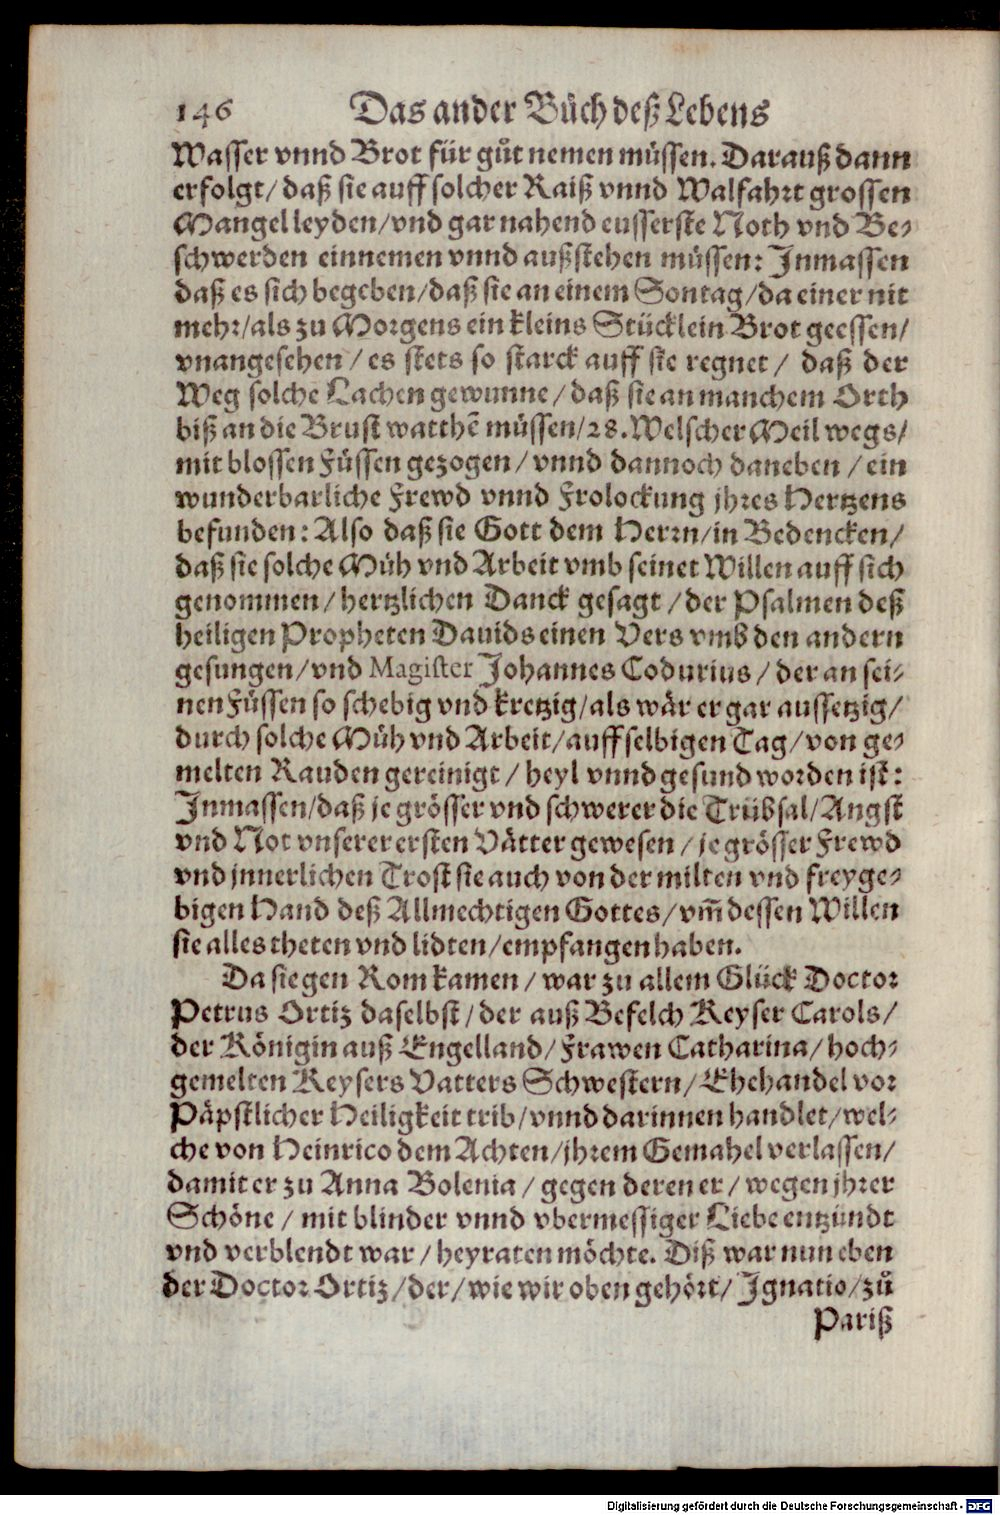 146 Das ander Bůch deß Lebens
Wasser vnnd Brot für gůt nemen müssen. Darauß dann
erfolgt/ daß sie auff solcher Raiß vnnd Walfahrt grossen
Mangel leyden/ vnd gar nahend eusserste Noth vnd Be-
schwerden einnemen vnnd außstehen müssen: Inmassen
daß es sich begeben/ daß sie an einem Sontag/ da einer nit
mehr/ als zu Morgens ein kleins Stücklein Brot geessen/
vnangesehen/ es stets so starck auff sie regnet/ daß der
Weg solche Lachen gewunne/ daß sie an manchem Orth
biß an die Brust watthẽ müssen/ 28. Welscher Meil wegs/
mit blossen Füssen gezogen/ vnnd dannoch daneben/ ein
wunderbarliche Frewd vnnd Frolockung jhres Hertzens
befunden: Also daß sie Gott dem Herrn/ in Bedencken/
daß sie solche Müh vnd Arbeit vmb seinet Willen auff sich
genommen/ hertzlichen Danck gesagt/ der Psalmen deß
heiligen Propheten Dauids einen Vers vmb den andern
gesungen/ vnd Magister Johannes Codurius/ der an sei-
nen Füssen so schebig vnd kretzig/ als wär er gar aussetzig/
durch solche Müh vnd Arbeit/ auff selbigen Tag/ von ge-
melten Rauden gereinigt/ heyl vnnd gesund worden ist:
Inmassen/ daß je grösser vnd schwerer die Trübsal/ Angst
vnd Not vnserer ersten Vätter gewesen/ je grösser Frewd
vnd jnnerlichen Trost sie auch von der milten vnd freyge-
bigen Hand deß Allmechtigen Gottes/ vm̃ dessen Willen
sie alles theten vnd lidten/ empfangen haben.
Da sie gen Rom kamen/ war zu allem Glück Doctor
Petrus Ortiz daselbst/ der auß Befelch Keyser Carols/
der Königin auß Engelland/ Frawen Catharina/ hoch-
gemelten Keysers Vatters Schwestern/ Ehehandel vor
Päpstlicher Heiligkeit trib/ vnnd darinnen handlet/ wel-
che von Heinrico dem Achten/ jhrem Gemahel verlassen/
damit er zu Anna Bolenia/ gegen deren er/ wegen jhrer
Schöne/ mit blinder vnnd vbermessiger Liebe entzündt
vnd verblendt war/ heyraten möchte. Diß war nun eben
der Doctor Ortiz/ der/ wie wir oben gehört/ Ignatio/ zů
Pariß
Digitalisierung gefördert durch die Deutsche Forschungsgemeinschaft - DFG